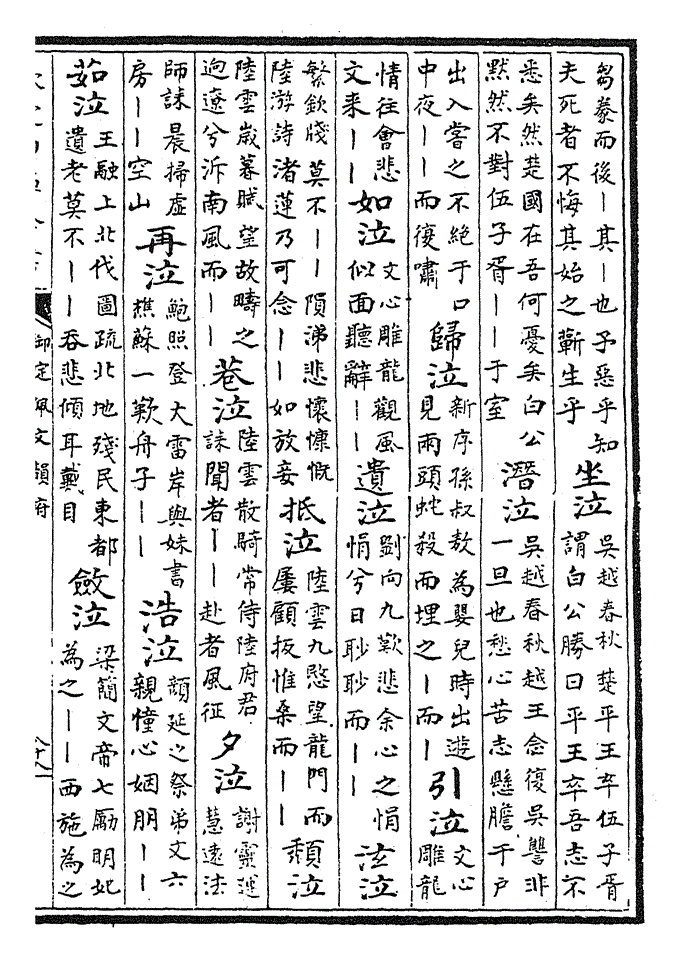 芻豢而後丨其丨也予惡乎知
夫死者不悔其始之蘄生乎
坐泣
吳越春秋楚平王卒伍子胥
謂白公勝曰平王卒吾志不
悉矣然楚國在吾何憂矣白公
黙然不對伍子胥丨丨于室
潛泣
吳越春秋越王念復吳讐非
一旦也愁心苦志懸膽于户
出入嘗之不絶于口
中夜丨丨而復嘯
歸泣
新序孫叔敖為嬰兒時出遊
見兩頭蛇殺而埋之丨而丨
引泣
文心
雕龍
情往會悲
文来丨丨
如泣
文心雕龍觀風
似面聽辭丨丨
遺泣
劉向九歎悲余心之悁
悁兮目眇眇而丨丨
泫泣
繁欽牋莫不丨丨隕涕悲懷慷慨
陸游詩渚蓮乃可念丨丨如放妾
抵泣
陸雲九愍望龍門而
屢顧扳惟桑而丨丨
頹泣
陸雲嵗暮賦望故疇之
逈遼兮泝南風而丨丨
巷泣
陸雲散騎常侍陸府君
誄聞者丨丨赴者風征
夕泣
謝靈運
慧遠法
師誄晨掃虚
房丨丨空山
再泣
鮑照登大雷岸與妹書
樵蘇一歎舟子丨丨
浩泣
顔延之祭弟文六
親憧心姻朋丨丨
茹泣
王融上北伐圖疏北地殘民東都
遺老莫不丨丨吞悲傾耳戴目
斂泣
梁簡文帝七勵明妃
為之丨丨西施為之
御定佩文韻府